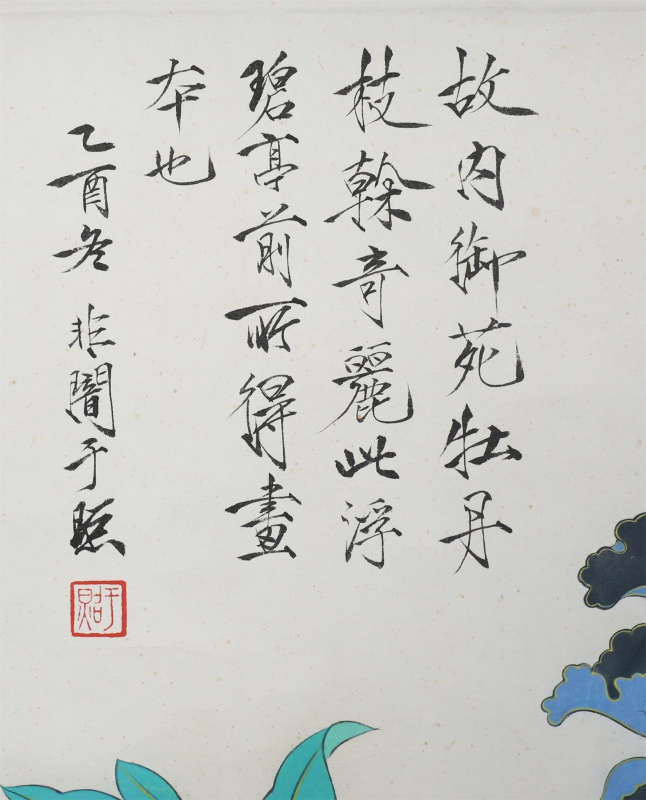 故内御苑牡丹
枝榦奇麗此浮
碧亭前所得畫
本也
乙酉冬非闇于照
于照